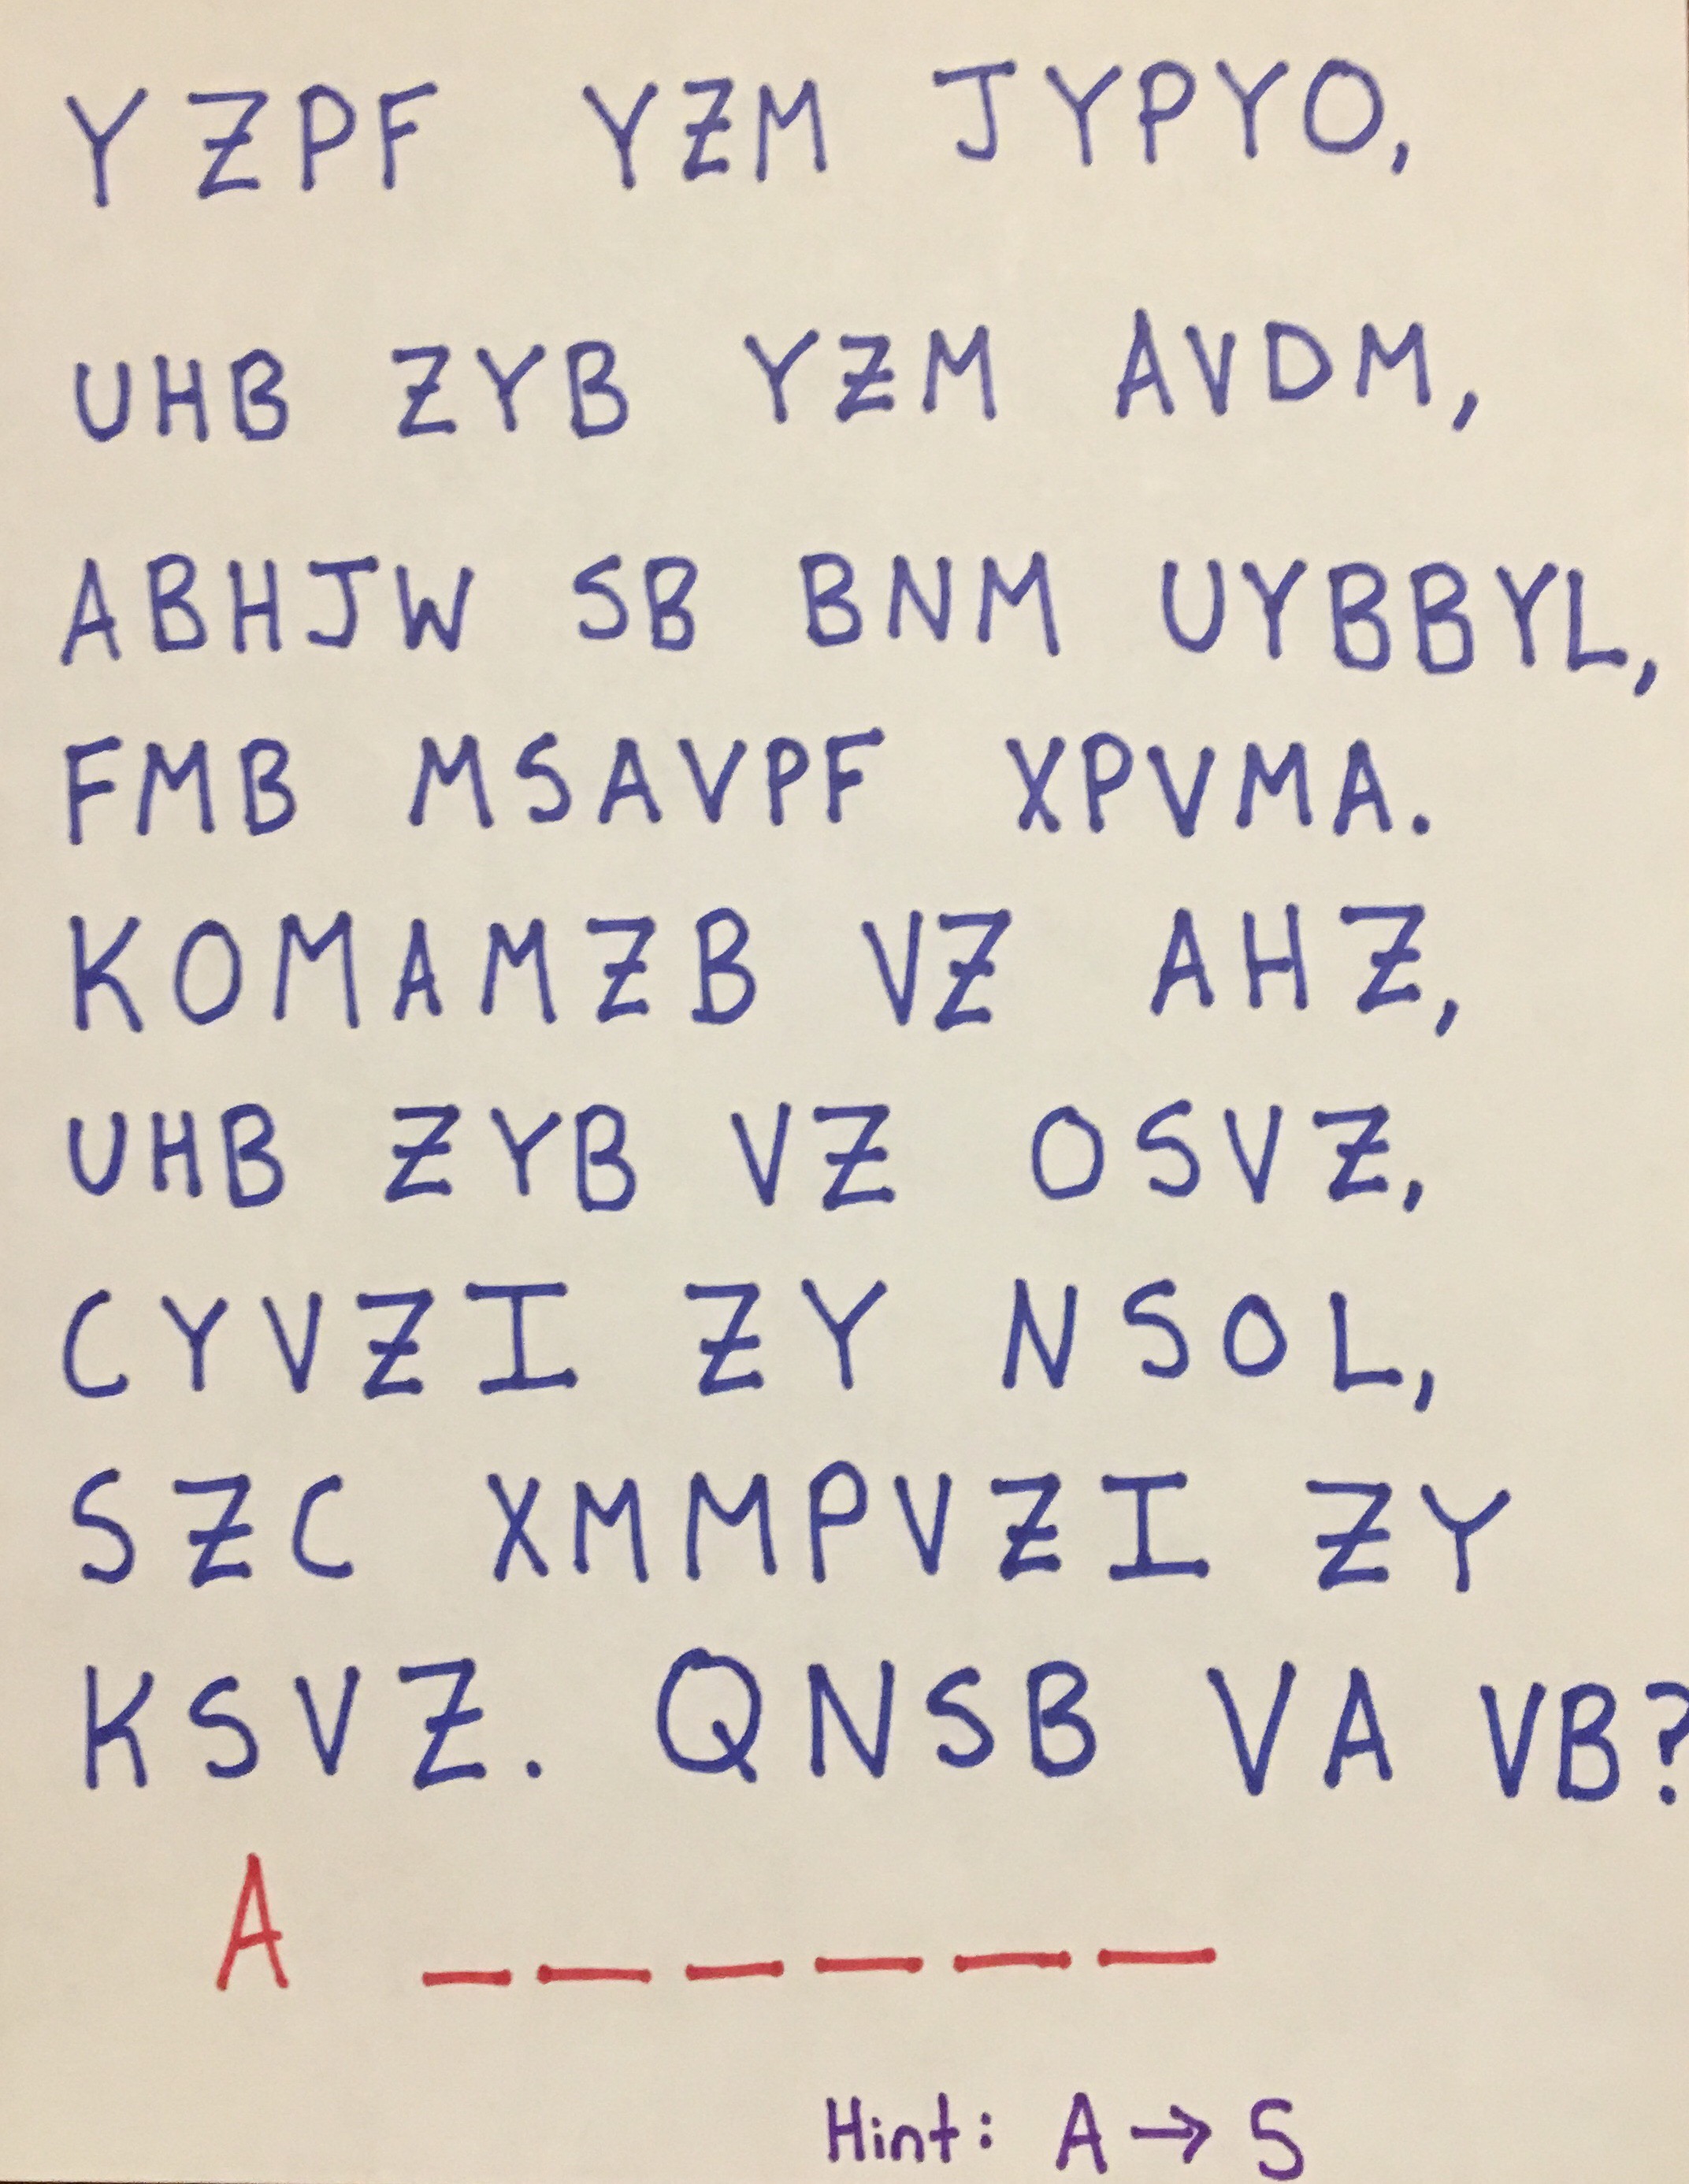 YZPF YZM JYPYO,
UHB ZYB YZM AVDM,
ABHJW SB BNM UYBBYL,
FMB MSAVPF XPVMA.
KOMAMZB VZ AHZ,
UHB ZYB VZ OSVZ,
CYVZI ZY NSOL,
SZC XMMPVZI ZY
KSVZ. QNSB VA VB?
A _ _ _ _ _ _
Hint: A → S